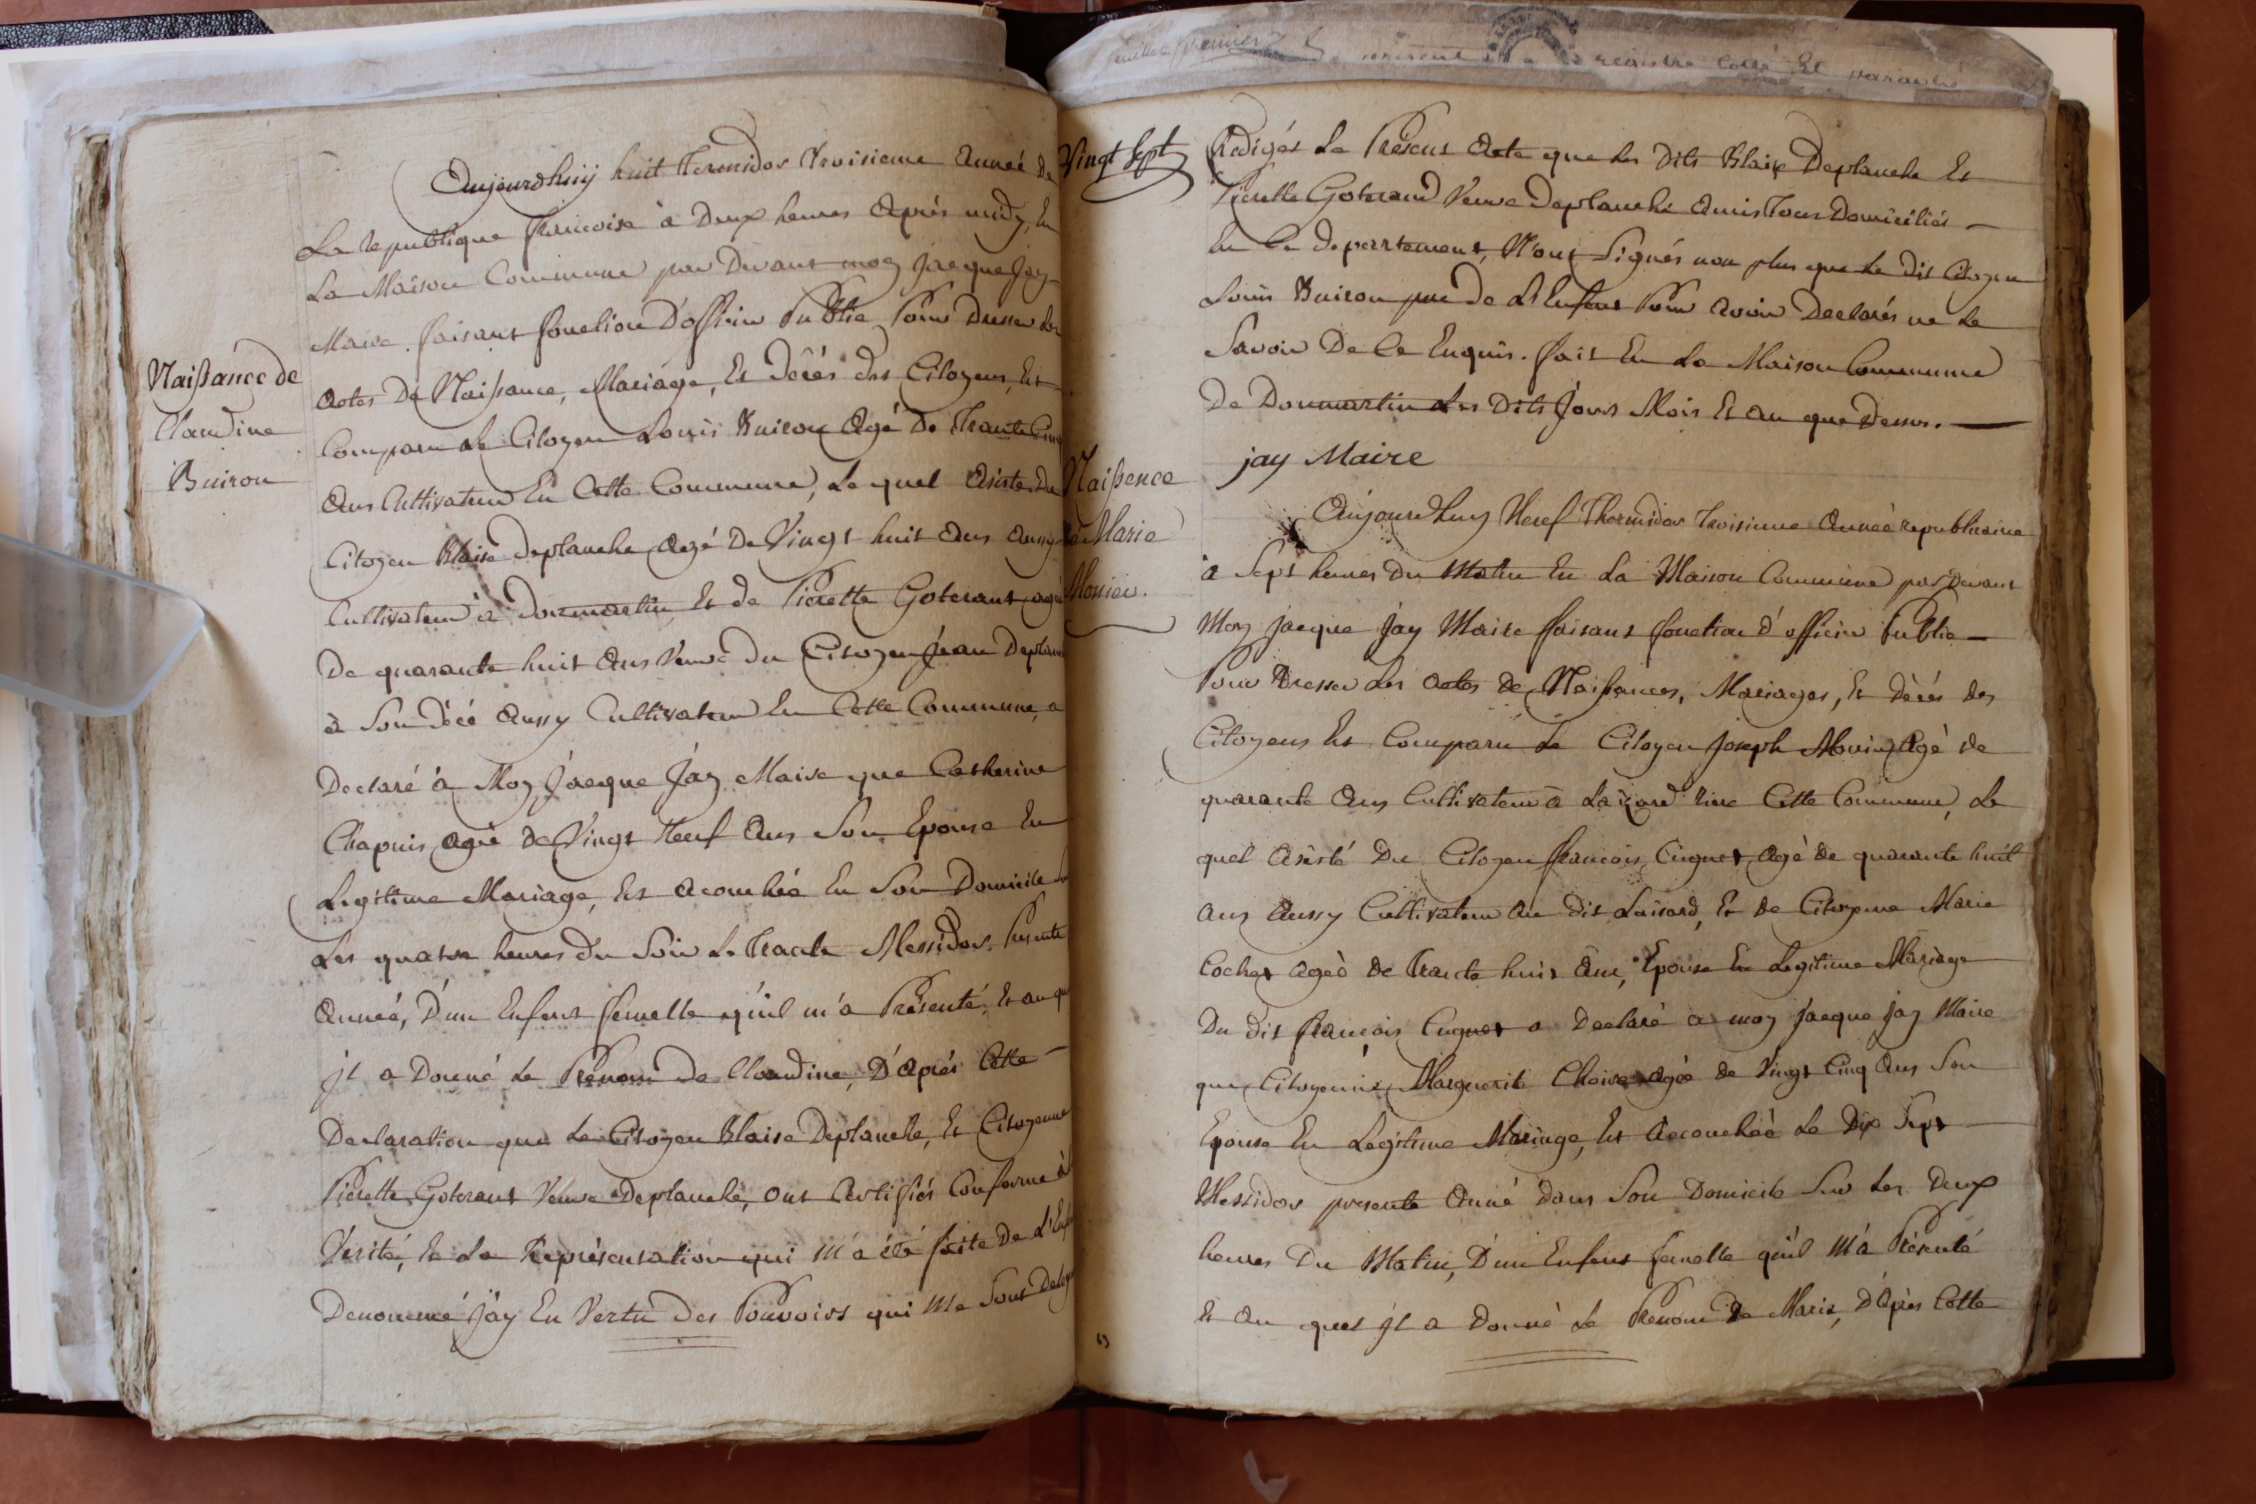 Naissance de
Claudine
Buiron
Aujourdhuy huit Termidor Troisieme Anneé de
La republique francoise à Deux heures Après midy, En
La Maison Commune par Devant moy Jacque Jay
Maire faisant fonction D'officier Public Pour Dresser Les
Actes De Naissance, Mariage, Et Décés des Citoyens, Est
Comparu Le Citoyen Louis Buiron Agé De Trante Cinq
Ans Cultivateur En Cette Commune, Le quel Asisté Du
Citoyen Blaise Deplanche Agé De Vingt huit Ans Aussy
Cultivateur à Dommartin, Et de Pierette Goterant agé
De quarante huit Ans Veuve du Citoyen Jean Deplanche
à Son Décé Aussy Cultivateur En Cette Commune, a
Declaré à Moy Jacque Jay Maire que Catherine
Chapuis Agée de Vingt Neuf Ans Son Epouse En
Legitime Mariage, Est Acouchée En Son Domicile
Les quatre heures du Soir Le Trante Messidor Presente
Anneé, D'un Enfant femelle qu'il m'a Présenté, Et au quel
jl a Donné Le Prenom de Claudine, D'Aprés Cette
Declaration que Le Citoyen Blaise Deplanche, Et Citoyenne
Pierette Goterant Veuve Deplanche, Ont Certifiés Conforme à
Vérité, Et La Representation qui M'a été faite De L'Enfant
Denommé J'ay En Vertu Des Pouvoirs qui Me Sont Delegués
feuillet premier
registre Cotté Et paraphé
Vingt Sept
Redigés Le Présent Acte que Les Dits Blaise Deplanche Et
Pierette Goterand Veuve Deplanche Amis Tous Domiciliés
En Ce Departement, N'ont Signés non plus que Le dit Citoyen
Louis Buiron pere De L'Enfant Pour Avoir Declarés ne Le
Savoir De Ce Enquis. fait En La Maison Commune
De Dommartin Les Dits Jours Mois Et An que Dessus.
jay Maire
Naissence
de Marie
Monier.
Aujourdhuy Neuf Thermidor Troisieme Anneé republicaine
à Sept heures Du Matin En La Maison Commune par Devant
Moy Jacque Jay Maire faisant fonction d'officier Public
Pour Dresser Les Actes de Naissances, Mariages, Et décés des
Citoyens Est Comparu Le Citoyen Joseph Monier Agé de
quarante Ans Cultivateur à Laizard riere Cette Commune, Le
quel Asisté Du Citoyen francois Cugnet Agé de quarante huit
Ans Aussy Cultivateur Au dit Laisard, Et de Citoyenne Marie
Cochet Ageé de Trante huit Ans, Epouse En Legitime Mariage
Du dit francois Cugnet a Declaré a moy Jacque Jay Maire
que Citoyenne Marguerite Agée de Vingt Cinq Ans Son
Epouse En Legitime Mariage, Est Accouchéé Le Dix Sept
Messidor presente Anné dans Son Domicile Sur Les Deux
heures Du Matin, D'un Enfant femelle qu'il M'a Présenté
Et Au quel jl a Donné Le Prenom De Marie, D'Apres Cette